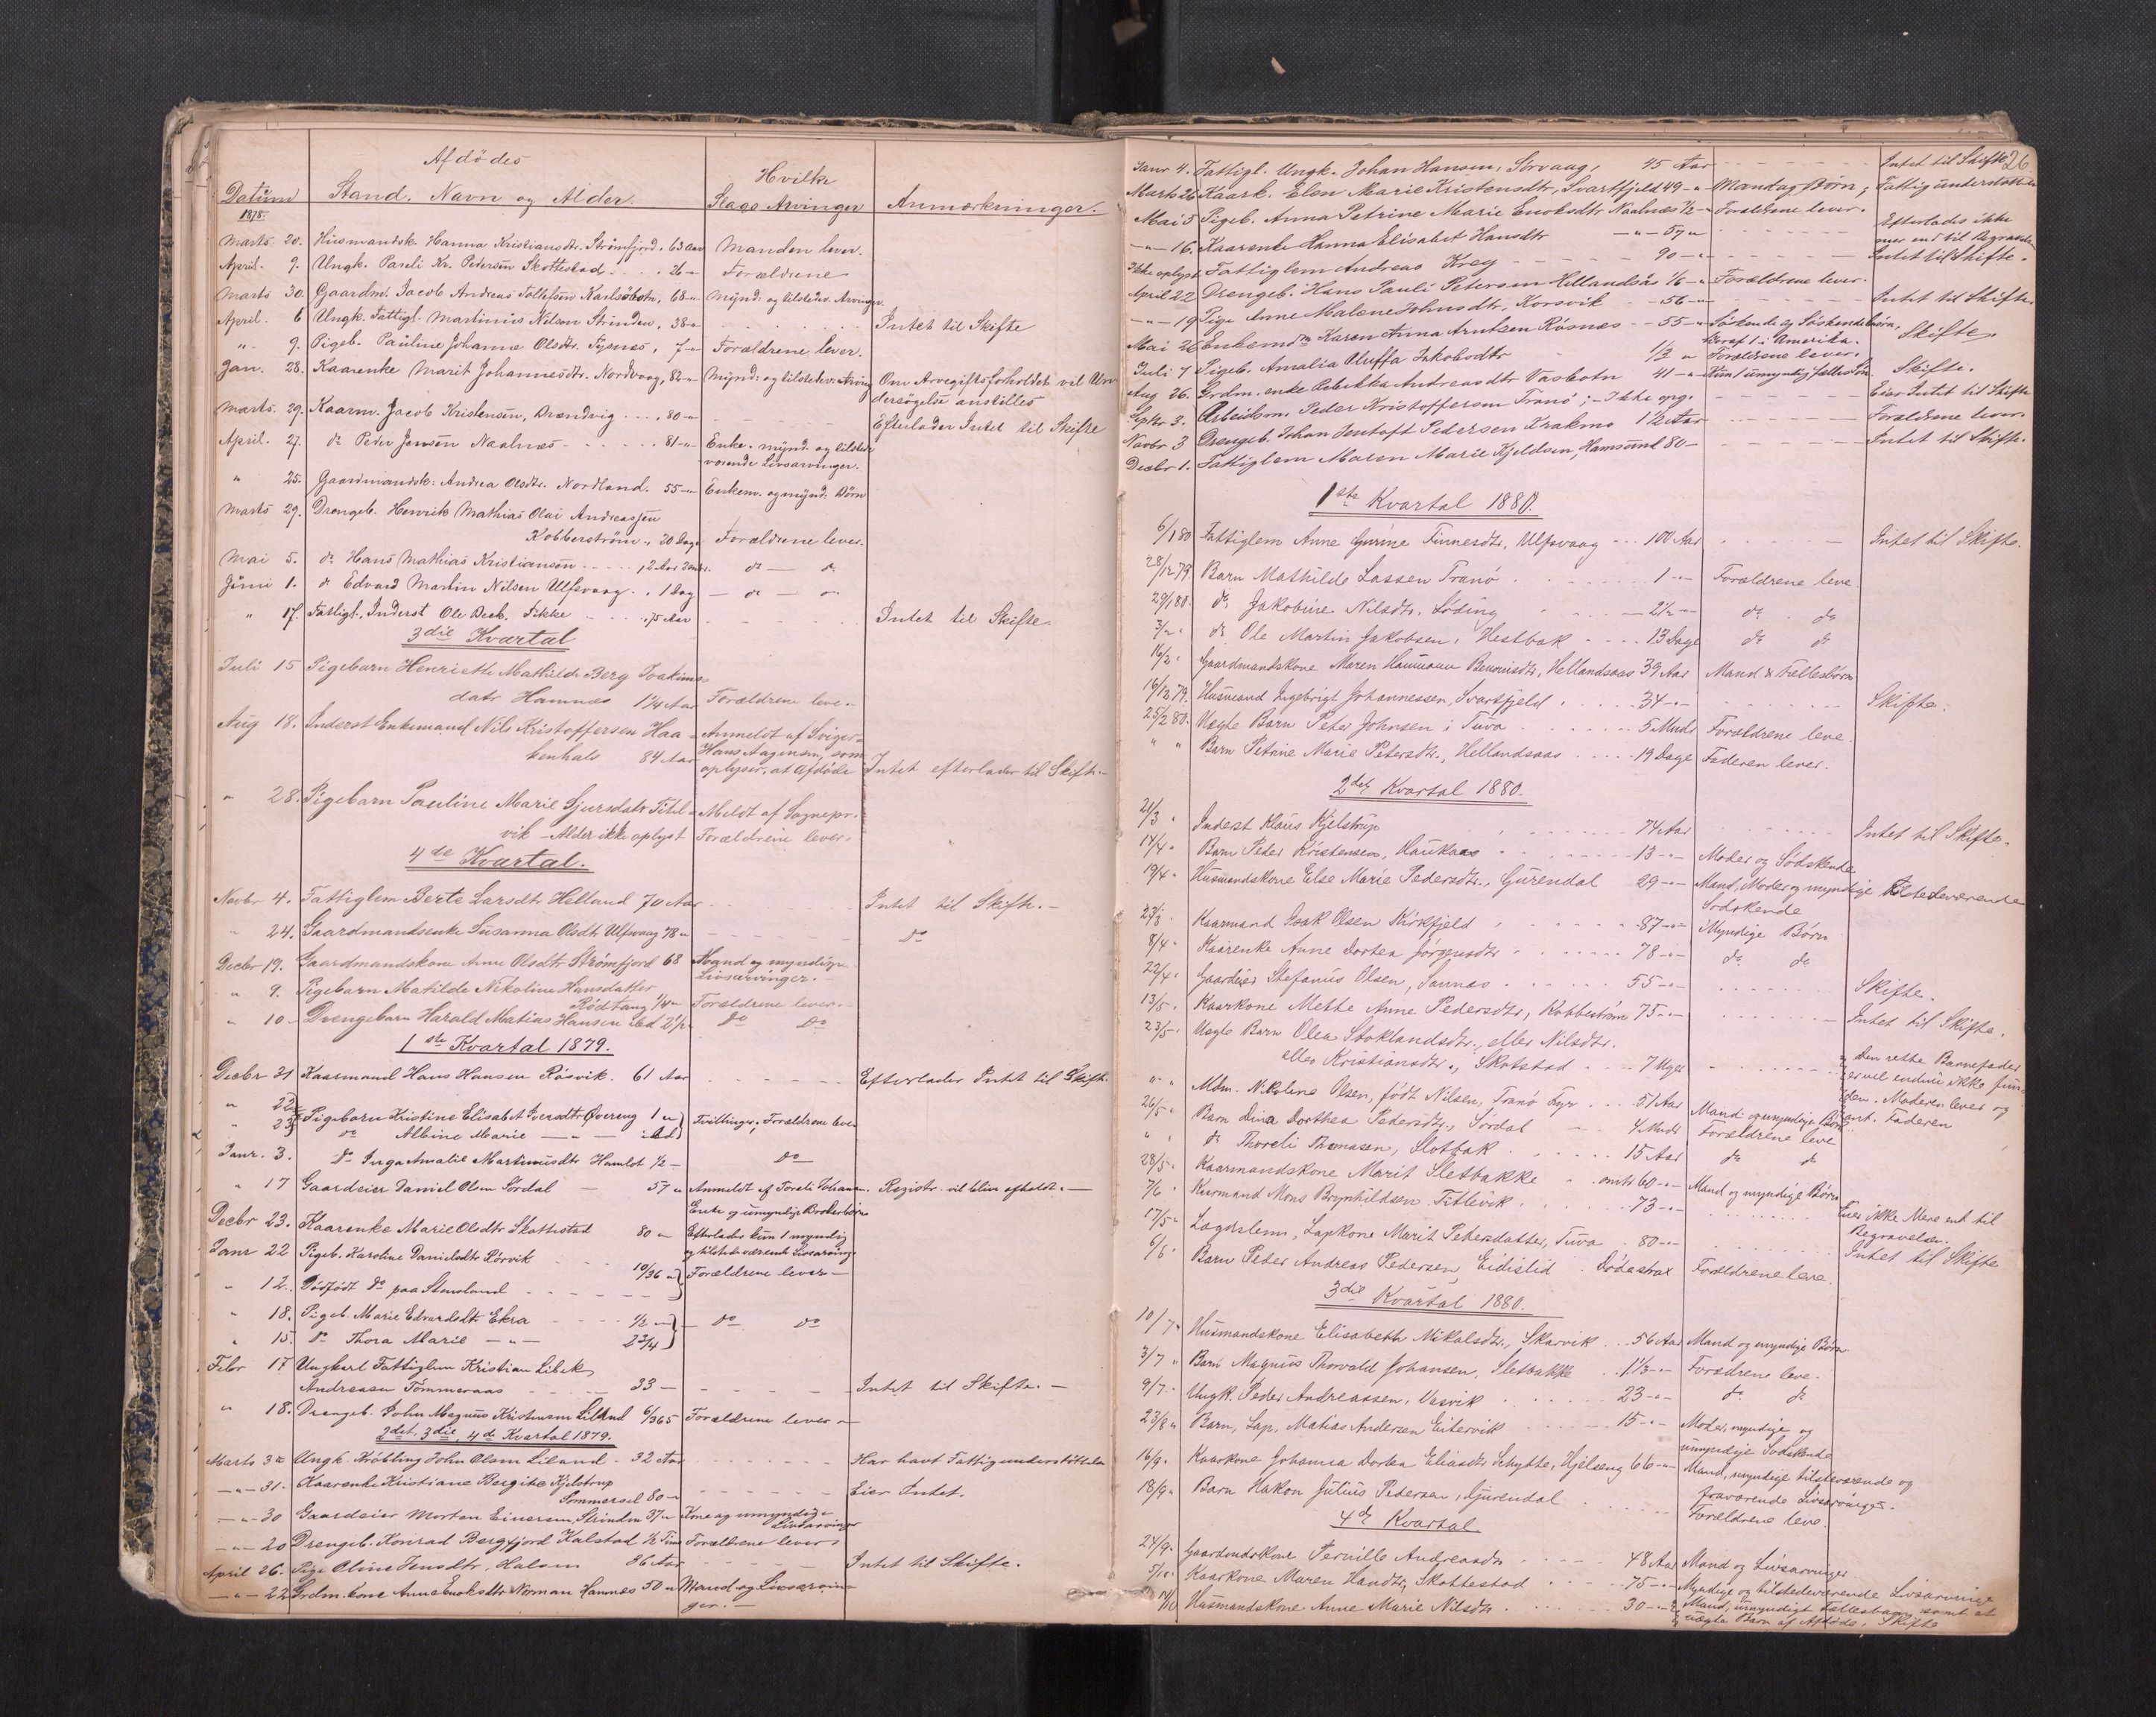 Afdödes
Hvilke
Datum Stand, Navn og Alder. Slags Arvinger Anmærkninger.
1878.
Marts 20. Husmandsk. Hanna Kristiansdtr. Strömfjord. 63 Aar Manden lever.
April. 9. Ungk. Pareli Kr. Pedersen Skottestad. 26 -"- Forældrene
Marts 30. Gaardm. Jacob Andreas Tollefsen Karlsöbotn, 68 -"- Mynd: og tilstedev. Arvinger.
April. 6 Ungk. Fattigl. Martinus Nilsen Strinden, 38 -"- Intet til Skifte
"- 9. Pigeb. Pauline Johanna Olsdtr. Fysnes, 7 -"- Forældrene lever.
Jan. 28. Kaarenke Marit Johannesdtr. Nordvaag, 82 -"- Mynd: og tilstedev: Arving Om Arvegiftsforholdet vil Un-
dersögelse anstilles
Marts. 29. Kaarm. Jacob Kristensen, Brændvig. 80 -"- Efterlader Intet til Skifte
April. 27. do Peder Jensen Naalnæs 81 -"- Enke. mynd. og tilstede
værende Livsarvinger.
" 25. Gaardmandsk: Andrea Olsdtr. Nordland. 55 -"- Enkem. og mynd: Börn
Marts 29. Drengeb. Henrik Mathias Olai Andreassen
Kobberström., 20 Dage Forældrene lever.
Mai 5. do Hans Mathias Kristiansen , 2 Aar do - do
Juni 1. do Edvard Martin Nilsen Ulfsvaag. 1 Dag - do -
" 17. Fattigl., Inderst Ole Beck, Fikke 75 Aar Intet til Skifte
3die Kvartal
Juli 15 Pigebarn Henriette Mathilde Berg Joakims-
datr Hamnes 1 1/4 Aar Forældrene leve.
Aug 18. Inderst Enkemand Nils Kristoffersen Haa- Anmeldt af Sviger-
kenhals 84 Aar Hans Aagensen, som
oplyser, at Afdöde Intet efterlader til Skifte.-
" 28. Pigebarn Pauline Marie Sjursdatr Titel- Meldt af Sognepr.
vik - Alder ikke oplyst Forældrene lever.
4de Kvartal.
Novbr 4. Fattiglem Berte Larsdtr Helland 70 Aar Intet til Skifte.-
" 24. Gaardmandsenke Susanna Olsdtr Ulfsvaag 78 " do
Decbr 19. Gaardmandskone Anne Olsdtr Strömfjord 68 Mand og myndige
Livsarvinger.
" 9. Pigebarn Matilde Nikoline Hansdatter
Rödtang 1/4 " Forældrene lever.
" 10 - Drengebarn Harald Matias Hansen ibd 2 1/2 do do
1ste Kvartal 1879.
Decbr 31 Kaarmand Hans Hansen Rösvik. 61 Aar Efterlader Intet til Skifte.
" 22
" 23 Pigebarn Kristine Elisabet Iversdtr Övereng 1 " Tvillinger, Forældrene leve
do Albine Marie - " - ibd
Janr. 3. do Inga Amalie Martinusdtr Hamlot 1/2 - do
" 17 Gaardeier Daniel Olsen Sördal - 57 " Anmeldt af Toreli Johans. Registr. vil blive afholdt. -
Enke og umyndige Broderbörn
Decbr 23. Kaarenke Marie Olsdtr Skottestad 80 " Efterlader kun 1 myndig
og tilstedeværende Livsarving.
Janr 22 Pigeb. Karoline Danielsdtr Rörvik 10/36 " Forældrene lever -
" 12. Dödfödt do paa Stensland
" 18. Pigeb. Marie Edvardsdtr Ekra 1/2 - do do
" 15. do Thora Marie - " - 2 3/4
Febr 17 Ungkarl Fattiglem Kristian Libek
Andreasen Tömmeraas 33 - Intet til Skifte. -
" 18. Drengeb. John Magnus Kristensen Liland 6/365 Forældrene lever
2det, 3die, 4de Kvartal 1879.
Marts Ungk. Kröbling John Olsen Liland - 32 Aar Har havt Fattigunderstöttelse
- " - 31. Kaarenke Kristiane Bergite Kjelstrup
Sommersel 80 - Eier Intet.
- " - 30 Gaardeier Morten Einersen, Strinden 37 " Kone og umyndige
Livsarvinger
- " - 20 Drengeb. Konrad Bergfjord Kalstad 1/2 Time Forældrene lever
April 26. Pige Oline Jensdtr, Halsen 86 Aar Intet til Skifte.
- " - 22 Grdm. kone Anne Enoksdtr Norman Hamnes 50 " Mand og Livsarvin-
ger. -
26
Janr 4. Fattigl. Ungk. Johan Hansen, Sörvaag, 45 Aar Intet til Skifte
Marts 26 Kaark. Elen Marie Kristensdtr, Svartfjeld 49 - " Mand og Börn; Fattigunderstöttelse
Mai 5 Pigeb. Anna Petrine Marie Enoksdtr Naalnæs 1/2 - Forældrene lever.
- " - 16. Kaarenke Hanna Elisabet Hansdtr - " - 57 " Efterlades ikke
mer end til Begravelse
Ikke oplyst Fattiglem Andreas Kreg 90 - " Intet til Skifte.
April 22 Drengeb. Hans Pauli Petersen Hellandsås 1/6 - " Forældrene lever.
- " - 19 Pige Anne Malene Johnsdtr, Korsvik - 56 - " Intet til Skifte.
Mai 26 Enkem Karen Anna Arntsen Rösnes - 55 - " Söskende og Söskendebörn, Skifte
hvoraf 1 i Amerika.
Juli 7 Pigeb. Amalia Oluffa Jakobsdtr 1/2 " Forældrene lever.
Aug 26. Grdm. enke Rebekka Andreasdtr Vasbotn 41 - " Kun 1 umyndig fælles Sön Skifte.
Septbr 3. Arbeidsm. Peder Kristoffersen Tranö; - Ikke opg. Eier Intet til Skifte
Novbr 3 Drengeb. Johan Jentoft Pedersen Krakmo 1 1/2 Aar Forældrene lever.
Decbr 1. Fattiglem Maren Marie Kjeldsen, Hamsund 80 - Intet til Skifte.
1ste Kvartal 1880.
6/1 80 Fattiglem Anne Gurine Finnesdtr, Ulfsvaag 100 Aar Intet til Skifte.
28/12 79. Barn Mathilde Lassen Tranö 1 - " - Forældrene leve
29/1 80. do Jakobine Nilsdtr. Löding 2 1/2 - " do do
3/2 " do Ole Martin Jakobsen, Hestbak 13 Dage do do
16/2 " Gaardmandskone Maren Hammann Benonisdtr, Hellandsaas 39 Aar Mand & Fællesbörn
16/12 79. Husmand Ingebrigt Johannessen, Svartfjeld 34 - " - Skifte.
25/2 80. Uægte Barn Peter Johnsen i Tuva 5 Mndr Forældrene leve.
" " Barn Petrine Marie Petersdtr., Hellandsaas 19 Dage Faderen lever.
2det Kvartal 1880.
21/3 " Inderst Klaus Kjelstrup 74 Aar Intet til Skifte.
14/4 " Barn Peder Kristensen, Haukaas 13 - " - Moder og Södskende
19/4 " Husmandskone Else Marie Pedersdtr., Gurendal 29 - " - Mand, Moder og myndige tilstedeværende
Södskende
23/3 " Kaarmand Isak Olsen Kirkfjeld 87 - " - Myndige Börn
8/4 " Kaarenke Anne Dortea Jörgensdtr 78 - " - do do
22/4 " Gaardeier Stefanus Olsen, Sannes 55 - " - Skifte.
13/5 " Kaarkone Mette Anne Pedersdtr, Kobbeström 75 - " - Intet til Skifte.
23/5 " Uægte Barn Olea Stoklandsdtr., eller Nilsdtr.
eller Kristiansdtr., Skotstad 7 Uger Den rette Barnefader
er vel endnu ikke fun-
" " Mdm. Nikoline Olsen, födt Nilsen, Tranö Fyr 51 Aar Mand og umyndige Börn den. Moderen lever og
ent. Faderen
26/5 " Barn Dina Dorthea Pedersdtr., Sördal 4 Mndr Forældrene leve
" " do Thoreli Thomasen, Slotbak 15 Aar do do
28/5 " Kaarmandskone Marit Sletbakke omtr 60 - " - Mand og myndige Börn
7/6 " Kaarmand Mons Brynhildsen Fittevik 73 - " - Eier ikke Mere end til
Begravelse.
17/5 " Lægdslem, Lapkone Marit Pedersdatter, Tuva 80 - " - Intet til Skifte
6/6 " Barn Peder Andreas Pedersen, Eidislid Döde strax Forældrene leve.
3die Kvartal 1880.
10/7 " Husmandskone Elisabeth Mikalsdtr, Skarvik 56 Aar Mand og myndige Börn
3/7 " Barn Magnus Thorvald Johansen, Sletbakke 1 1/3 - " - Forældrene leve.
9/7 " Ungk. Peder Andreassen, Vasvik 23 - " - do do
23/8 " Barn, Lap, Matias Andersen Eitervik 15 - " - Moder, myndige og
umyndige Södskende
16/9 " Kaarkone Johanna Dortea Eliasdtr Schytte, Hjelseng 66 - " - Mand, myndige tilstedeværende og
fraværende Livsarvinger.
18/9 " Barn Hakon Julius Pedersen, Gjurendal Forældrene leve.
4de Kvartal
24/9 " Gaardmdskone Pernille Andreasdtr 48 Aar Mand og Livsarvinger.
Kaarkone Maren Hansdtr, Skottestad 75 - " - Myndige og tilstedeværende Livsarvinger
Husmandskone Anne Marie Nilsdtr. 30 - " - Mand, umyndigt Fællesbarn samt et
uægte Barn af Afdöde. Skifte